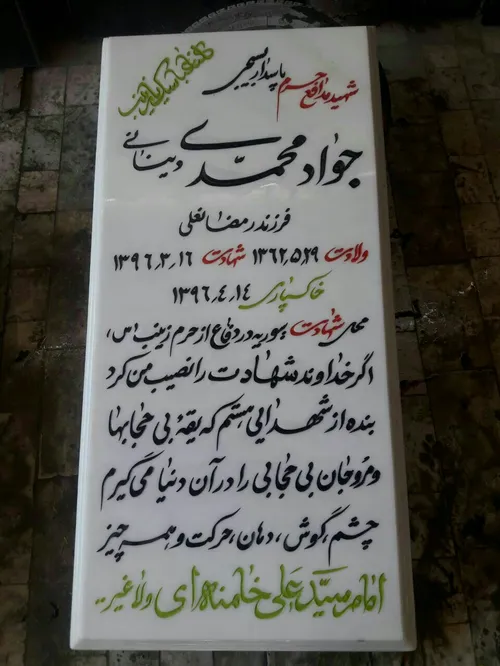 کلنا عباسک یا زینب
شهید مدافع حرم پاسدار بسیجی
جواد محمدی دینانی
فرزند رمضانعلی
ولادت ۱۳۶۲٫۵٫۲۹ شهادت ۱۳۹۶٫۳٫۱۶
خاکسپاری ۱۳۹۶٫۴٫۱۴
محل شهادت سوریه در دفاع از حرم زینب (س)
اگر خداوند شهادت را نصیب من کرد
بنده از شهدایی هستم که یقهٔ بی حجابها
و مروجان بی حجابی را در آن دنیا می گیرم
چشم، گوش، دهان، حرکت و همه چیز
امام سید علی خامنه ای ولاغیر..